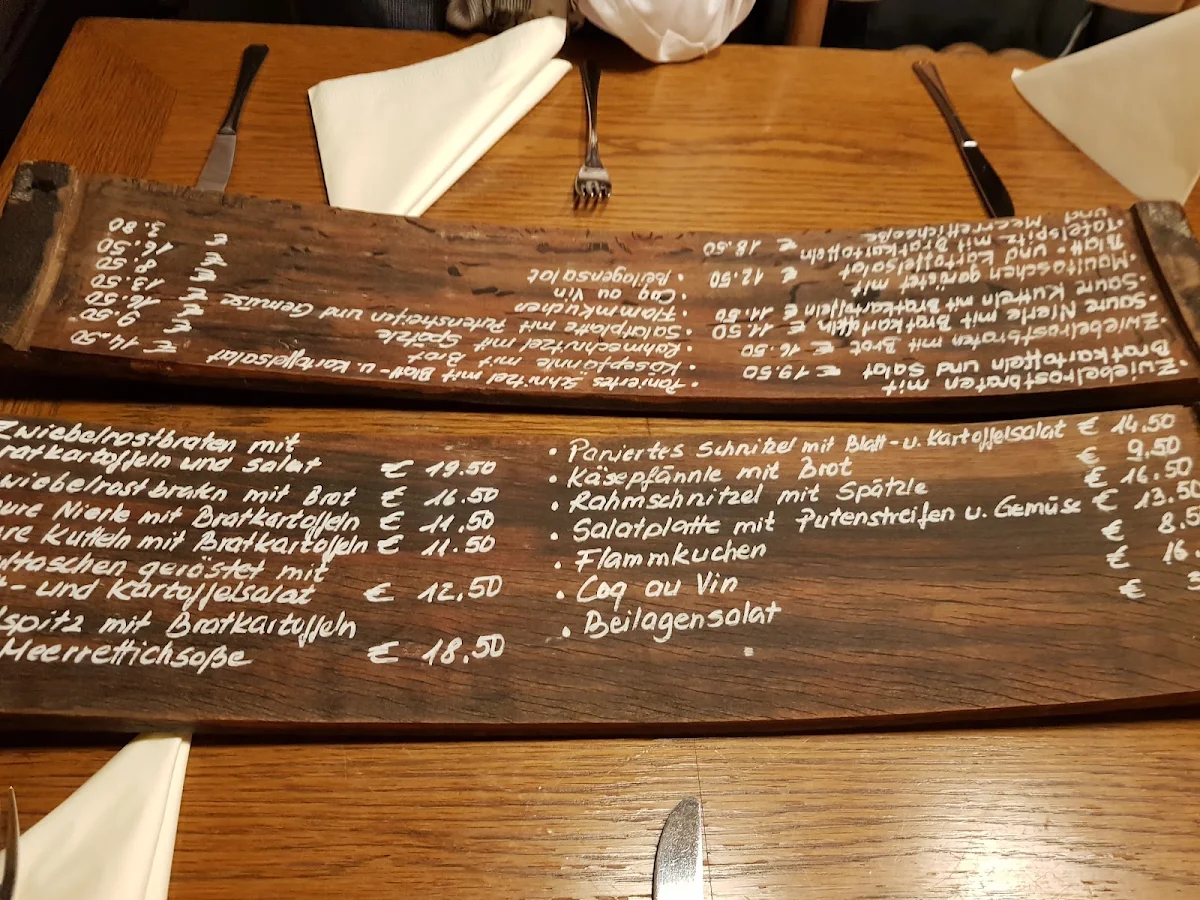 • Zwiebelrostbraten mit
Bratkartoffeln und Salat € 19.50
• Zwiebelrostbraten mit Brot € 16.50
• Saure Nierle mit Bratkartoffeln € 11.50
• Saure Kutteln mit Bratkartoffeln € 11.50
• Maultaschen geröstet mit
Blatt- und Kartoffelsalat € 12.50
Tafelspitz mit Bratkartoffeln
und Meerrettichsoße € 18.50
• Paniertes Schnitzel mit Blatt- u. Kartoffelsalat € 14.50
• Käsepfännle mit Brot € 9.50
• Rahmschnitzel mit Spätzle € 16.50
• Salatplatte mit Putenstreifen und Gemüse € 13.50
• Flammkuchen € 8.50
• Coq au Vin € 16.50
• Beilagensalat € 3.80
Zwiebelrostbraten mit
ratkartoffeln und Salat € 19.50
wiebelrostbraten mit Brot € 16.50
ure Nierle mit Bratkartoffeln € 11.50
re Kutteln mit Bratkartoffeln € 11.50
ultaschen geröstet mit
t- und Kartoffelsalat € 12.50
lspitz mit Bratkartoffeln
Meerrettichsoße € 18.50
• Paniertes Schnitzel mit Blatt- u. Kartoffelsalat € 14.50
• Käsepfännle mit Brot € 9.50
• Rahmschnitzel mit Spätzle € 16.50
• Salatplatte mit Putenstreifen u. Gemüse € 13.50
• Flammkuchen € 8.5
• Coq au Vin € 16
• Beilagensalat € 3